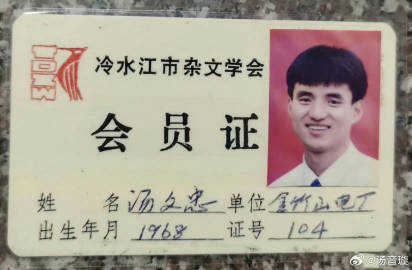 冷水江市杂文学会
会员证
姓名 汤文忠 单位 金竹山电厂
出生年月 1968 证号 104
@汤音璇